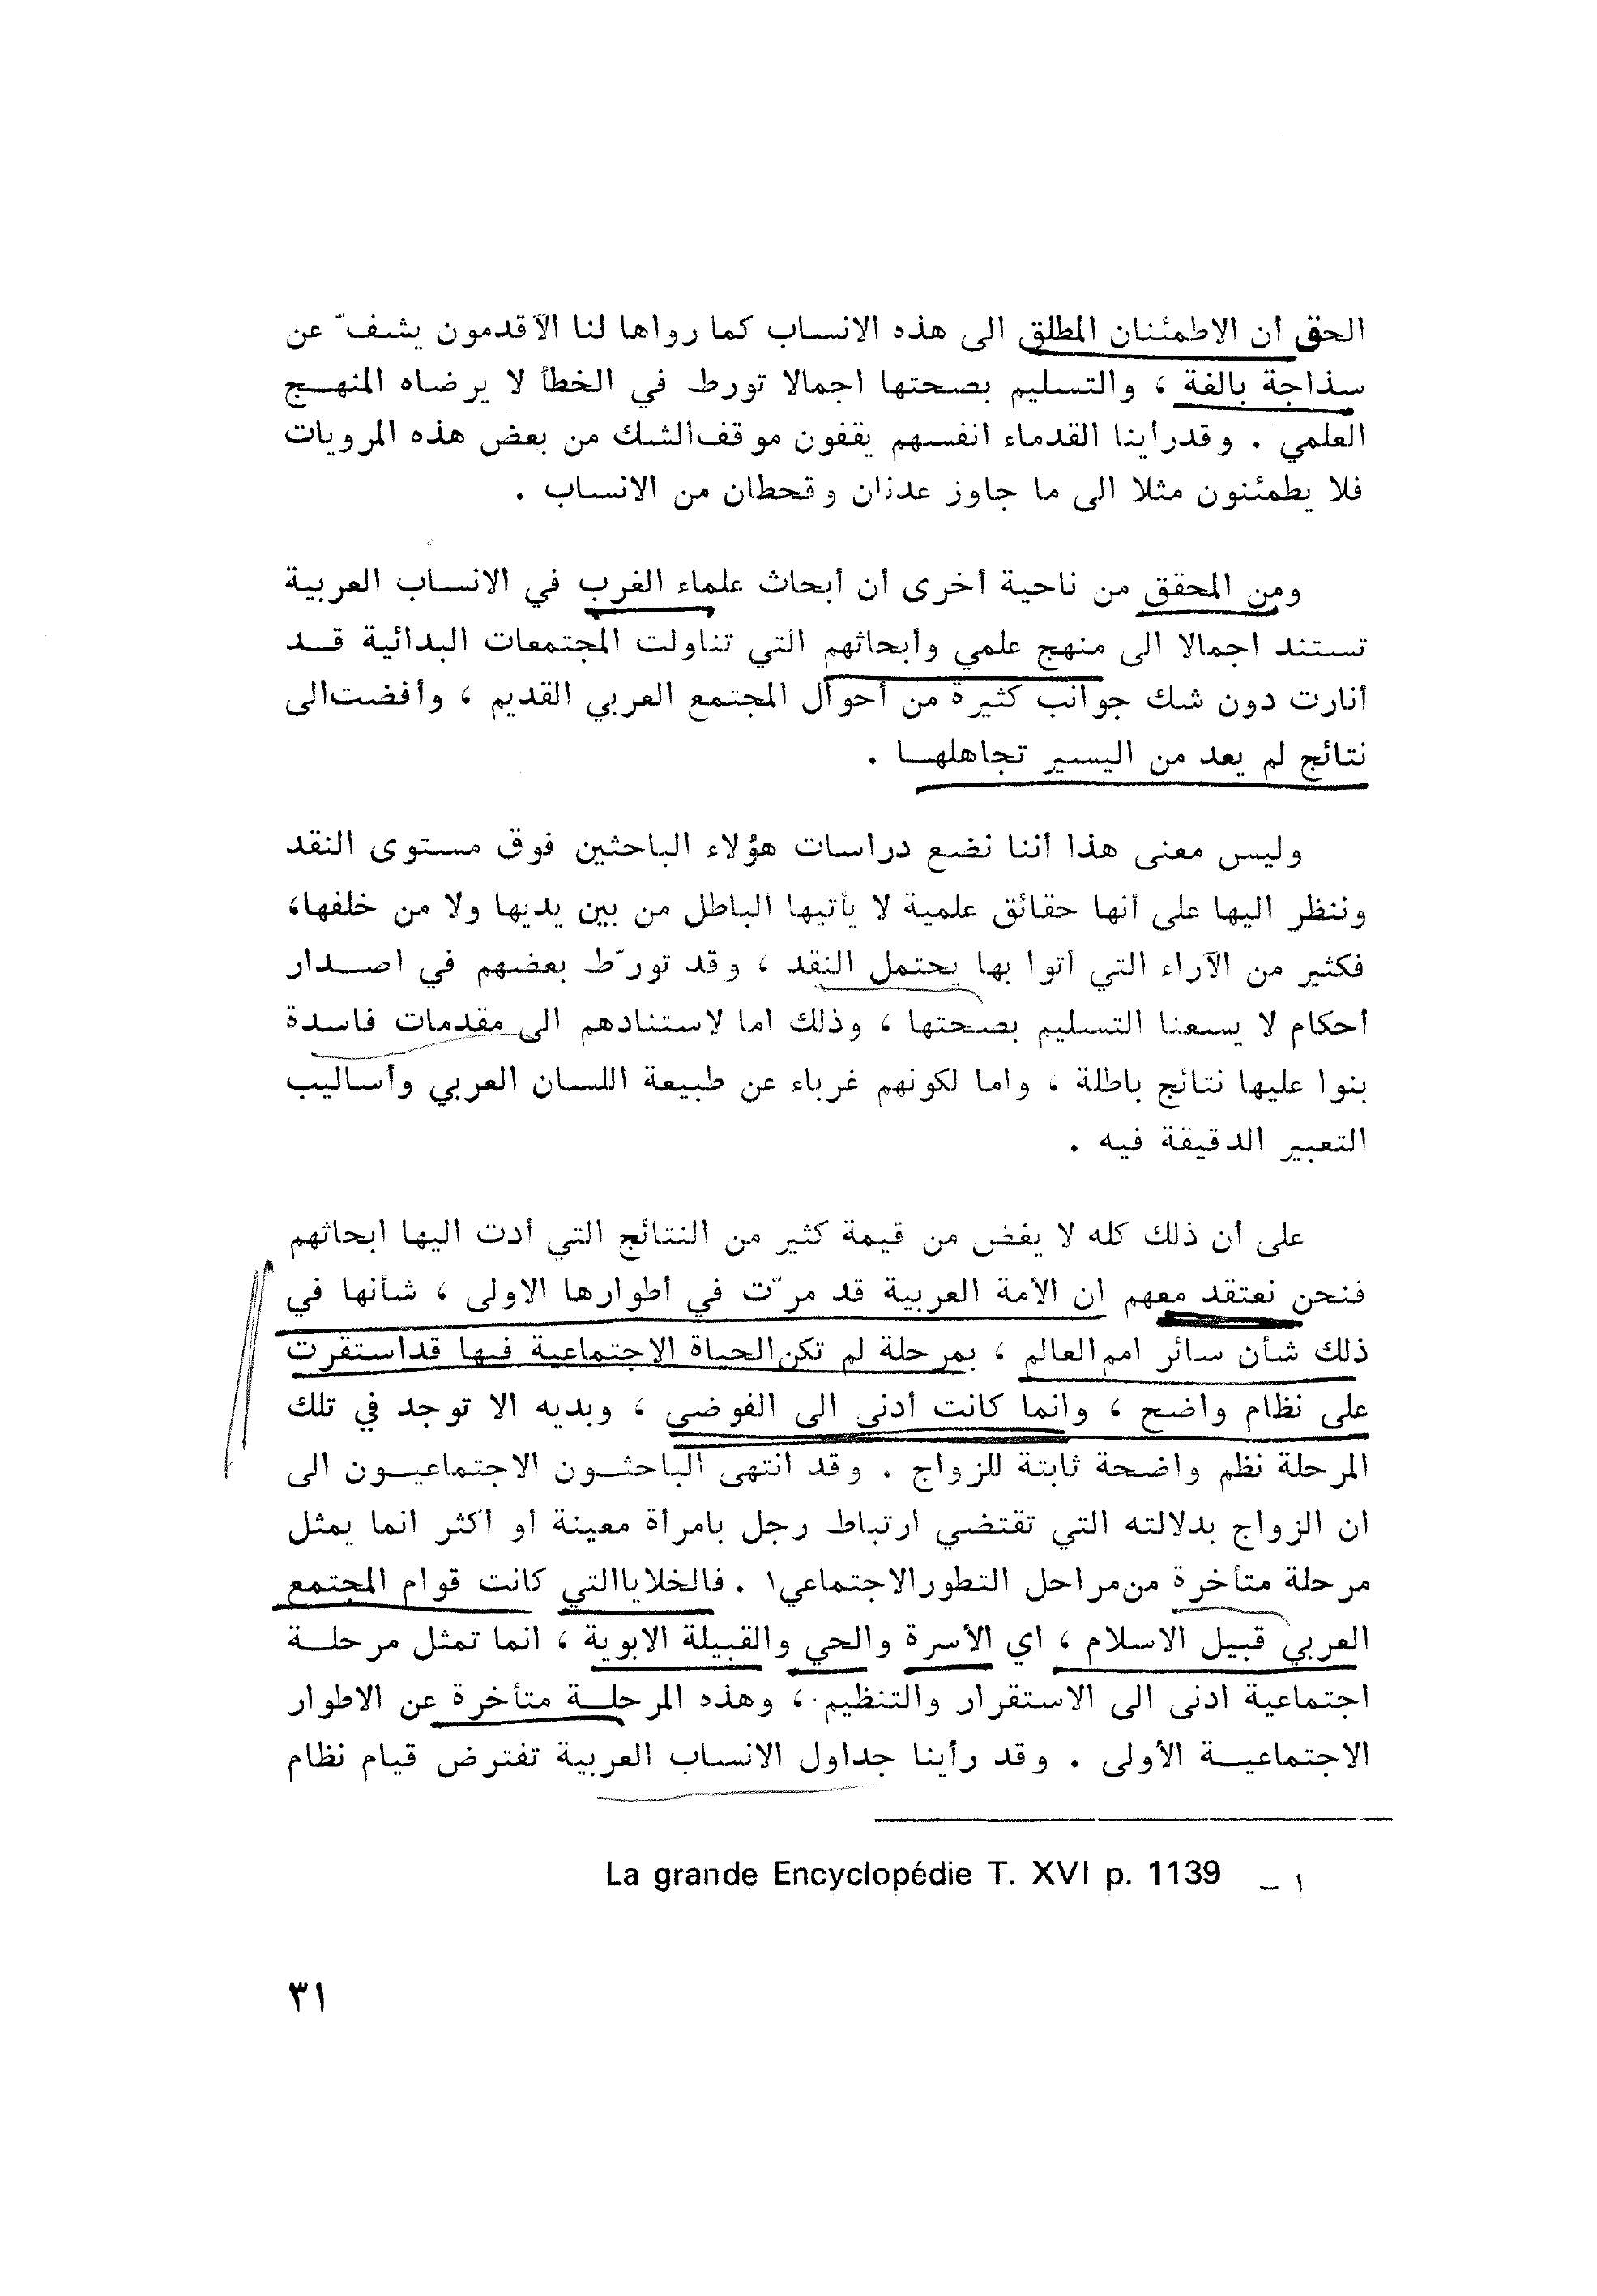 الحق أن الاطمئنان المطلق الى هذه الانساب كما رواها لنا الأقدمون يشف ّ عن
سذاجة بالغة ، والتسليم بصحتها اجمالا تورط في الخطأ لا يرضاه المنهــج
العلمي . وقدرأينا القدماء انفسهم يقفون موقف الشك من بعض هذه المرويات
فلا يطمئنون مثلا الى ما جاوز عدنان وقحطان من الانساب .
ومن المحقق من ناحية أخرى أن أبحاث علماء الغرب في الانساب العربية
تستند اجمالا الى منهج علمي وأبحاثهم التي تناولت المجتمعات البدائية قــد
أنارت دون شك جوانب كثيرة من أحوال المجتمع العربي القديم ، وأفضت الى
نتائج لم يعد من اليسير تجاهلهــا .
وليس معنى هذا أننا نضع دراسات هؤلاء الباحثين فوق مستوى النقد
وننظر اليها على أنها حقائق علمية لا يأتيها الباطل من بين يديها ولا من خلفها،
فكثير من الآراء التي أتوا بها يحتمل النقد ، وقد تورّط بعضهم في اصــدار
أحكام لا يسعنا التسليم بصحتها ، وذلك اما لاستنادهم الى مقدمات فاسدة
بنوا عليها نتائج باطلة ، واما لكونهم غرباء عن طبيعة اللسان العربي وأساليب
التعبير الدقيقة فيه .
على أن ذلك كله لا يغض من قيمة كثير من النتائج التي أدت اليها ابحاثهم
فنحن نعتقد معهم ان الأمة العربية قد مرّت في أطوارها الاولى ، شأنها في
ذلك شأن سائر امم العالم ، بمرحلة لم تكن الحياة الاجتماعية فيها قد استقرت
على نظام واضح ، وانما كانت أدنى الى الفوضى ، وبديه الا توجد في تلك
المرحلة نظم واضحة ثابتة للزواج . وقد انتهى الباحثــون الاجتماعيــون الى
ان الزواج بدلالته التي تقتضي ارتباط رجل بامرأة معينة او أكثر انما يمثل
مرحلة متأخرة من مراحل التطور الاجتماعي١ . فالخلايا التي كانت قوام المجتمع
العربي قبيل الاسلام ، اي الأسرة والحي والقبيلة الابوية ، انما تمثل مرحلــة
اجتماعية ادنى الى الاستقرار والتنظيم ، وهذه المرحلــة متأخرة عن الاطوار
الاجتماعيــة الأولى . وقد رأينا جداول الانساب العربية تفترض قيام نظام
١ – La grande Encyclopédie T. XVI p. 1139
٣١